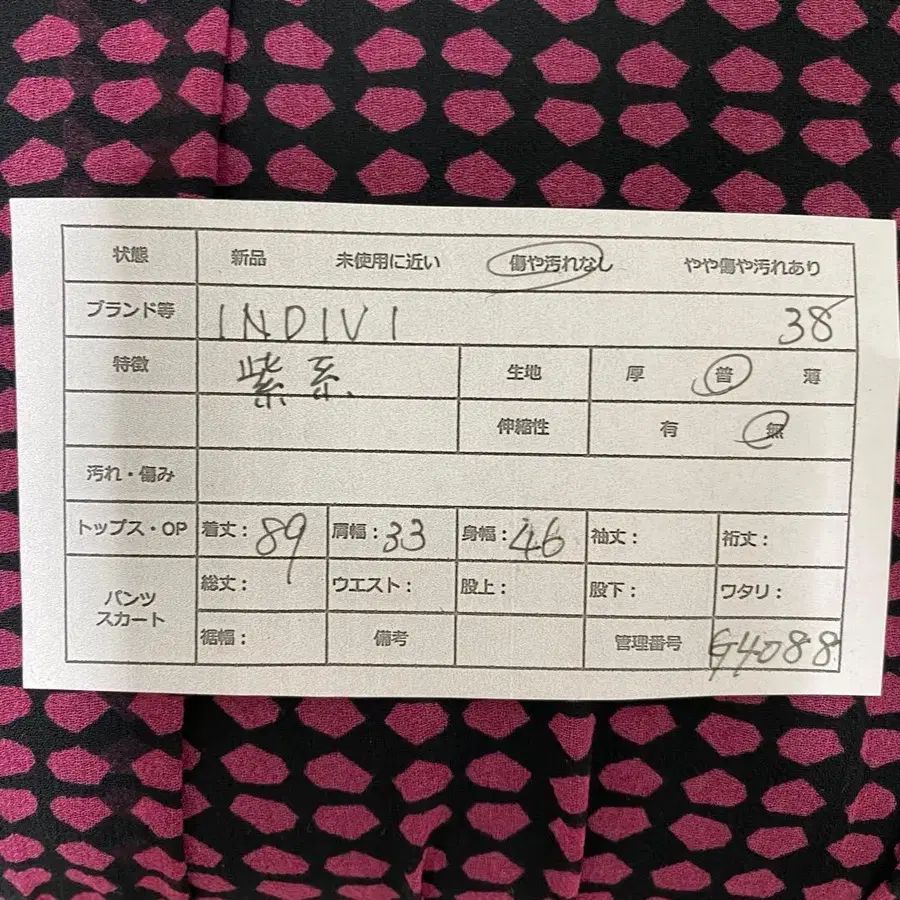 状態 新品 未使用に近い 傷や汚れなし やや傷や汚れあり
ブランド等 INDIVI 38
特徴 紫系. 生地 厚 普 薄
伸縮性 有 無
汚れ・傷み
トップス・OP 着丈：89 肩幅：33 身幅：46 袖丈： 裄丈：
パンツ スカート 総丈： ウエスト： 股上： 股下： ワタリ：
裾幅： 備考 管理番号 G4088